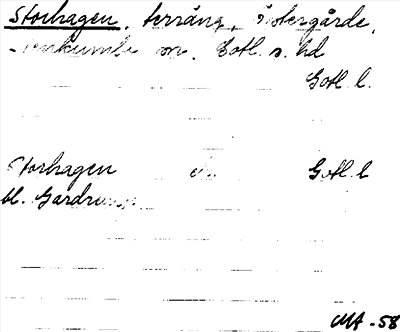 Storhagen, terräng, Östergårde,
sn. Gotl. s. hd
Gotl. l.
Storhagen Gotl. l
bl. Gardrung
MA - 58